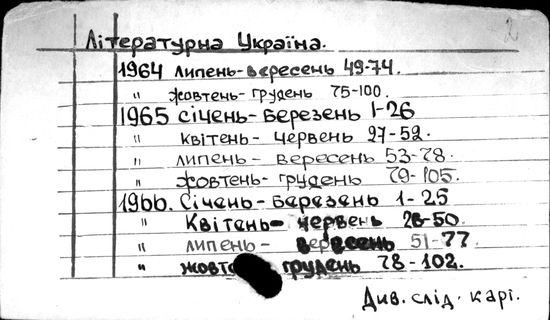 2
Літературна Україна.
1964 липень-вересень 49-74.
" жовтень-грудень 75-100.
1965 січень-березень 1-26
" квітень-червень 27-52.
" липень-вересень 53-78.
" жовтень-грудень 79-105.
1966. Січень-березень 1-25
" Квітень-червень 26-50.
" липень-вересень 51-77
" жовт грудень 78-102.
Див. слід. карі.